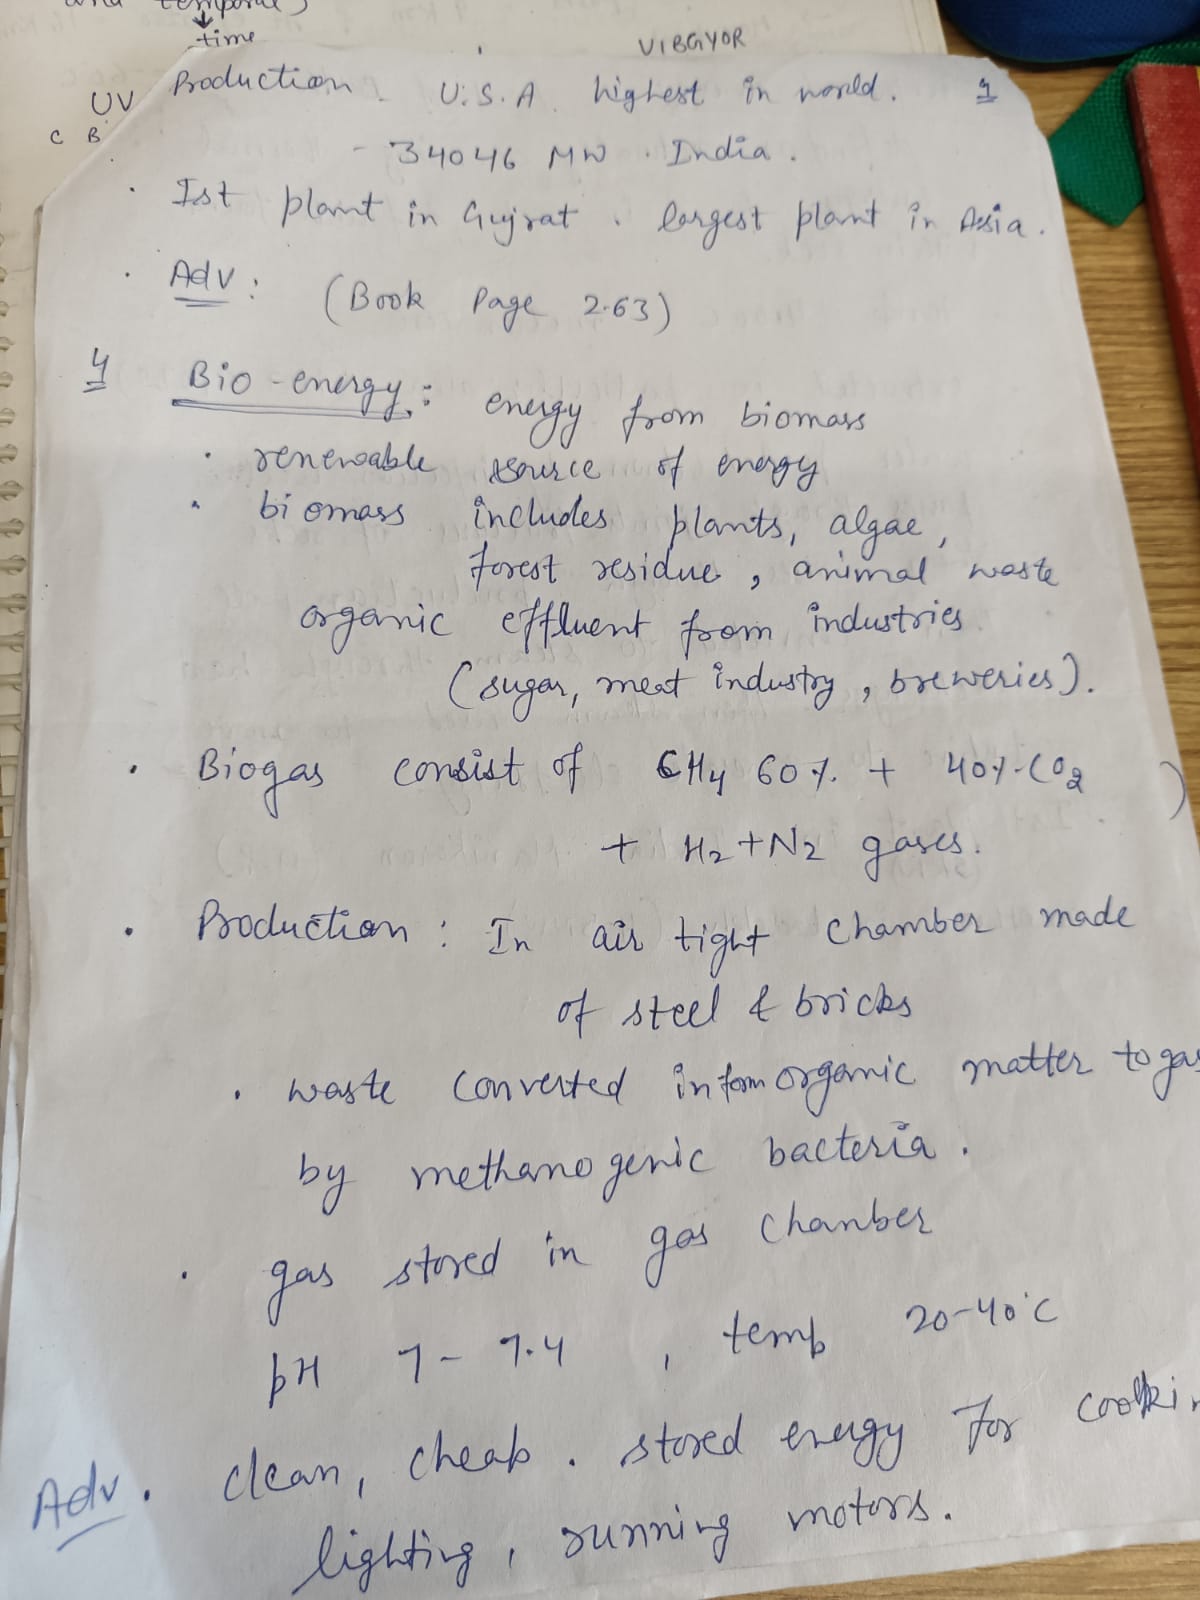 and temporal)
time
VIBGYOR
UV
C B
Production . U.S.A. highest in world. 4
- 34046 MW . India .
Ist plant in Gujrat . largest plant in Asia .
Adv : (Book Page 2.63)
4 Bio-energy : energy from biomass
renewable source of energy
biomass includes plants, algae,
forest residue, animal waste
organic effluent from industries
(sugar, meat industry, breweries).
Biogas consist of CH4 60% + 40% CO2
+ H2 + N2 gases.
Production : In air tight chamber made
of steel & bricks
waste converted in form organic matter to gas
by methanogenic bacteria .
gas stored in gas chamber
pH 7 - 7.4 , temp 20-40°C
Adv . clean, cheap . stored energy for cookin
lighting, running motors.